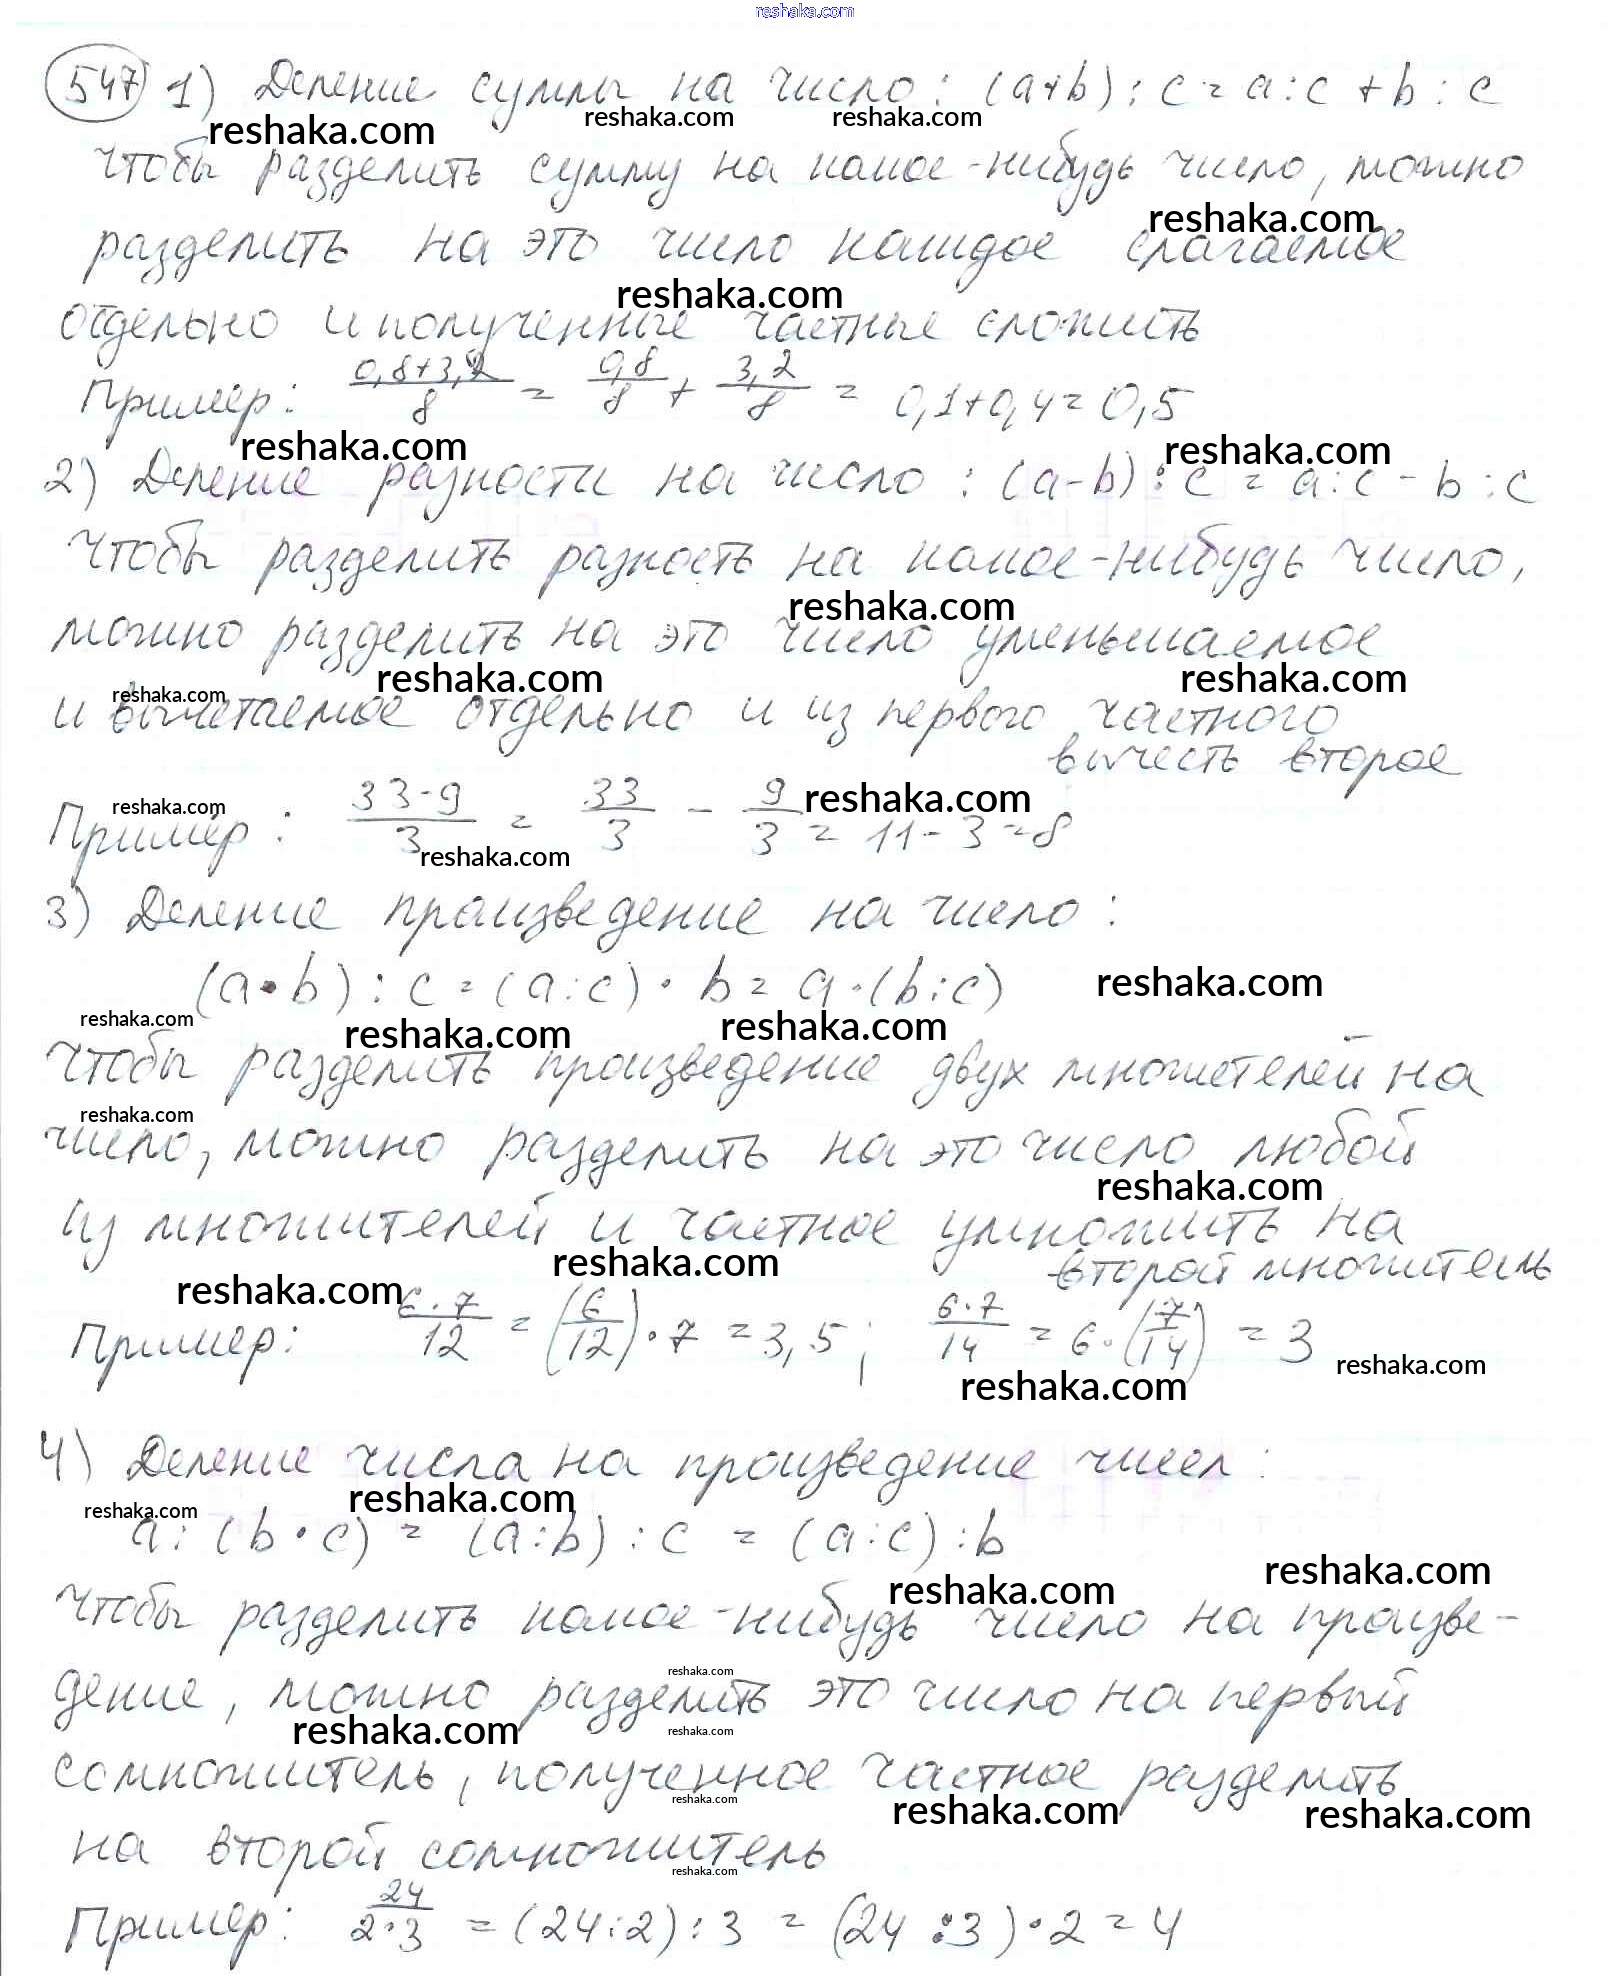 reshaka.com
547 1) Деление суммы на число: (a+b):c=a:c+b:c
reshaka.com reshaka.com reshaka.com
Чтобы разделить сумму на какое-нибудь число, можно
reshaka.com
разделить на это число каждое слагаемое
reshaka.com
отдельно и полученные частные сложить
Пример: (0,8+3,2)/8 = 0,8/8 + 3,2/8 = 0,1+0,4=0,5
reshaka.com reshaka.com
2) Деление разности на число: (a-b):c=a:c-b:c
Чтобы разделить разность на какое-нибудь число,
reshaka.com
можно разделить на это число уменьшаемое
reshaka.com reshaka.com
reshaka.com
и вычетаемое отдельно и из первого частного
вычесть второе
reshaka.com reshaka.com
Пример: (33-9)/3 = 33/3 - 9/3 = 11-3=8
reshaka.com
3) Деление произведение на число:
(a•b):c=(a:c)·b=a·(b:c) reshaka.com
reshaka.com reshaka.com reshaka.com
Чтобы разделить произведение двух множетелей на
reshaka.com
число, можно разделить на это число любой
reshaka.com
из множителей и частное умножить на
второй множитель
reshaka.com reshaka.com
Пример: 6·7/12 = (6/12)·7=3,5; 6·7/14 = 6·(7/14) = 3
reshaka.com reshaka.com
4) Деление числа на произведение чисел:
reshaka.com reshaka.com
a:(b·c) = (a:b):c = (a:c):b
reshaka.com reshaka.com
Чтобы разделить какое-нибудь число на произве-
reshaka.com
дение, можно разделить это число на первый
reshaka.com reshaka.com
сомножитель, полученное частное разделить
reshaka.com reshaka.com reshaka.com
на второй сомножитель
reshaka.com
Пример: 24/2·3 = (24:2):3 = (24:3)·2=4